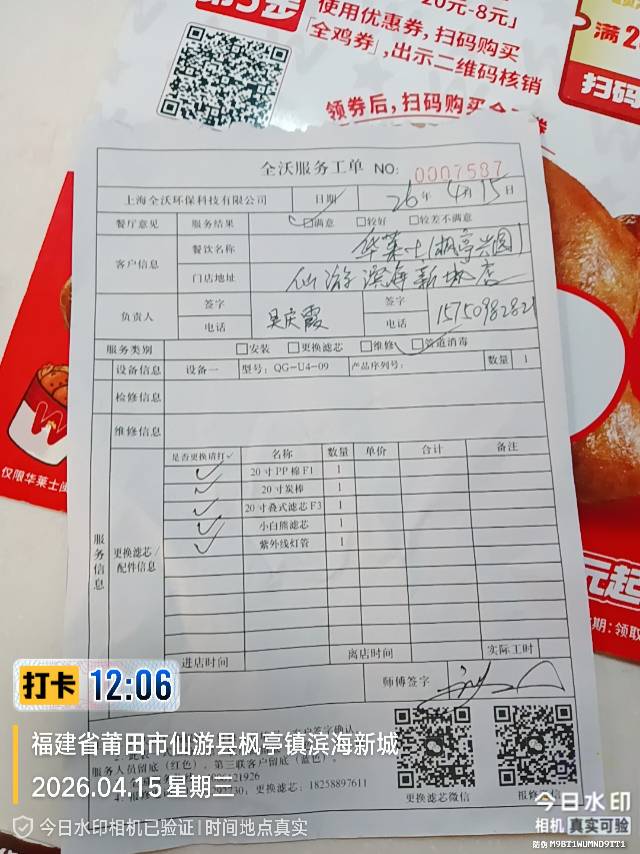 20元-8元」
使用优惠券,扫码购买
「全鸡券」,出示二维码核销
领券后,扫码购买
满2
扫码
全沃服务工单 NO: 0007587
上海全沃环保科技有限公司 日期 26年 4月 15日
餐厅意见 服务结果 ☑满意 □较好 □较差不满意
客户信息 餐饮名称 华莱士(枫亭兴园)
门店地址 仙游滨海新城店
负责人 签字 吴庆霞 签字
电话 电话 15750982821
服务类别 □安装 □更换滤芯 □维修 ☑管道消毒
设备信息 设备一 型号:QG-U4-09 产品序列号: 数量 1
检修信息
维修信息
服务信息
更换滤芯/配件信息
是否更换请打✓ 名称 数量 单价 合计 备注
✓ 20寸PP棉F1 1
✓ 20寸炭棒 1
✓ 20寸叠式滤芯F3 1
✓ 小白熊滤芯 1
✓ 紫外线灯管 1
进店时间 离店时间 实际工时
师傅签字
签字确认
服务人员留底(红色)、第三联客户留底(蓝色)。
21926
更换滤芯:18258897611
更换滤芯微信
仅限华莱士
元起
期:领取
打卡 12:06
福建省莆田市仙游县枫亭镇滨海新城
2026.04.15 星期三
今日水印相机已验证 | 时间地点真实
今日水印
相机 真实可验
防伪 M9BT1WUMND9TT1